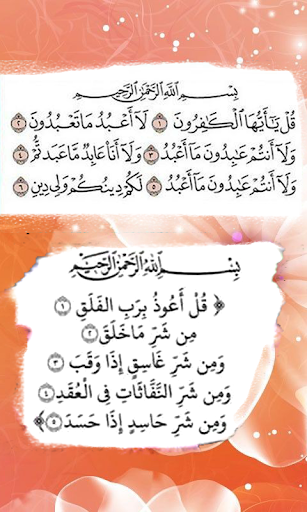 بِسْمِ اللَّهِ الرَّحْمَٰنِ الرَّحِيمِ
قُلْ يَا أَيُّهَا الْكَافِرُونَ ١ لَا أَعْبُدُ مَا تَعْبُدُونَ ٢
وَلَا أَنتُمْ عَابِدُونَ مَا أَعْبُدُ ٣ وَلَا أَنَا عَابِدٌ مَّا عَبَدتُّمْ ٤
وَلَا أَنتُمْ عَابِدُونَ مَا أَعْبُدُ ٥ لَكُمْ دِينُكُمْ وَلِيَ دِينِ ٦
بِسْمِ اللَّهِ الرَّحْمَٰنِ الرَّحِيمِ
﴿ قُلْ أَعُوذُ بِرَبِّ الْفَلَقِ ١
مِن شَرِّ مَا خَلَقَ ٢
وَمِن شَرِّ غَاسِقٍ إِذَا وَقَبَ ٣
وَمِن شَرِّ النَّفَّاثَاتِ فِي الْعُقَدِ ٤
وَمِن شَرِّ حَاسِدٍ إِذَا حَسَدَ ٥ ﴾